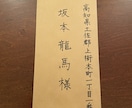 高知県土佐郡上街本町一丁目一番
坂本龍馬様